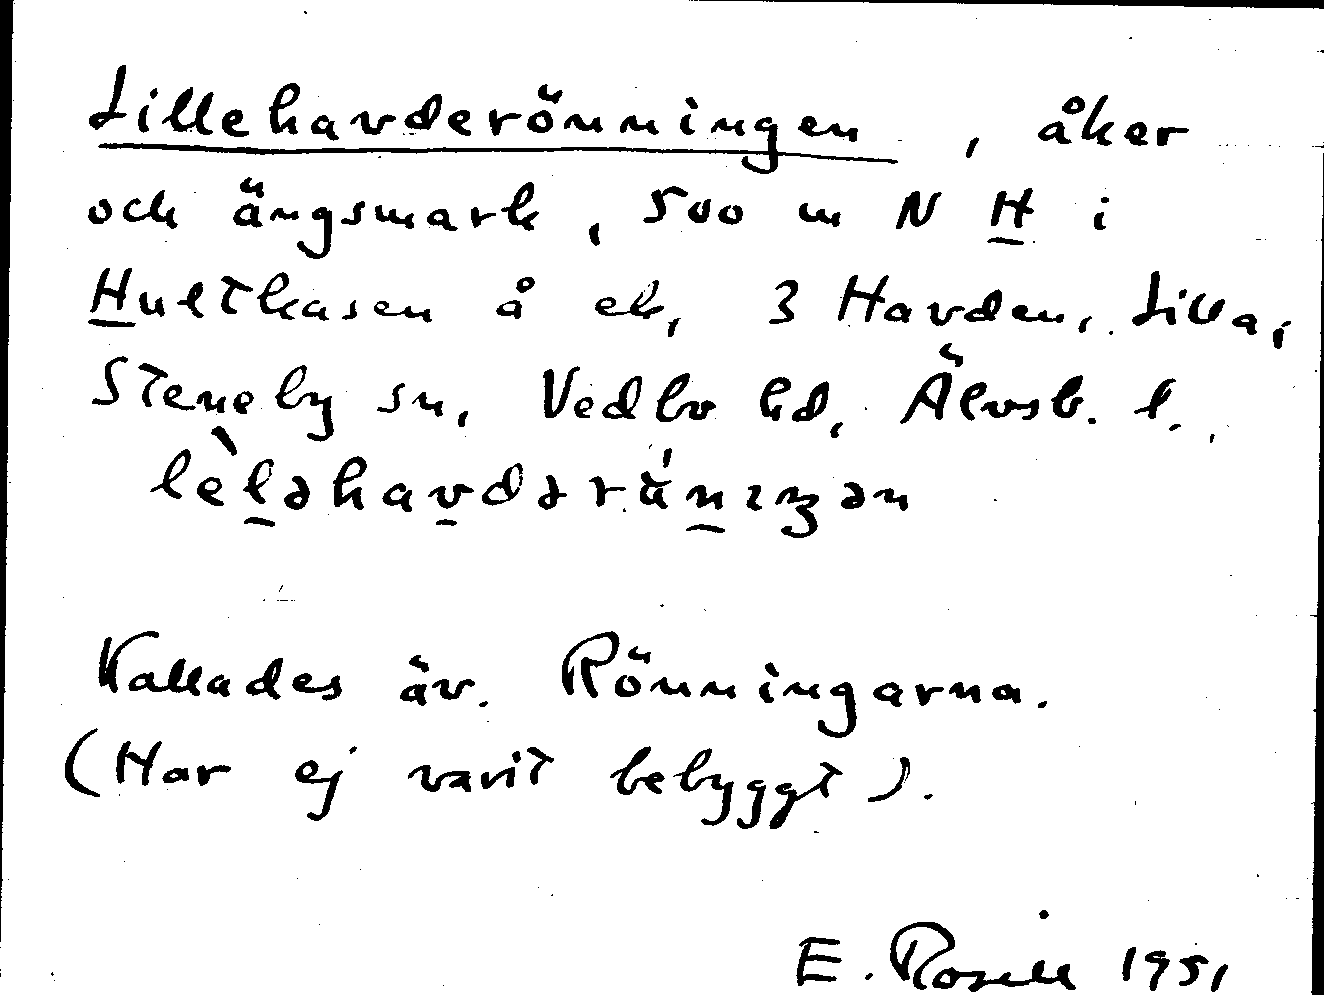 Lillehavderönningen, åker
och ängsmark, 500 m N H i
Hultkasen å ek, 3 Havden, Lilla,
Steneby sn, Vedbo hd, Älvsb. l.
lèləhavdərä́nıŋən
Kallades äv. Rönningarna.
(Har ej varit bebyggt).
E. Rosell 1951